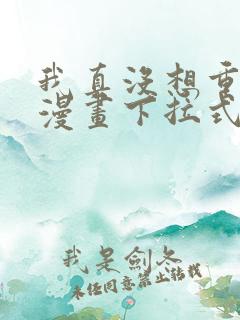 我真没想重
漫畫下拉式
我是劍冬
未经同意禁止转载